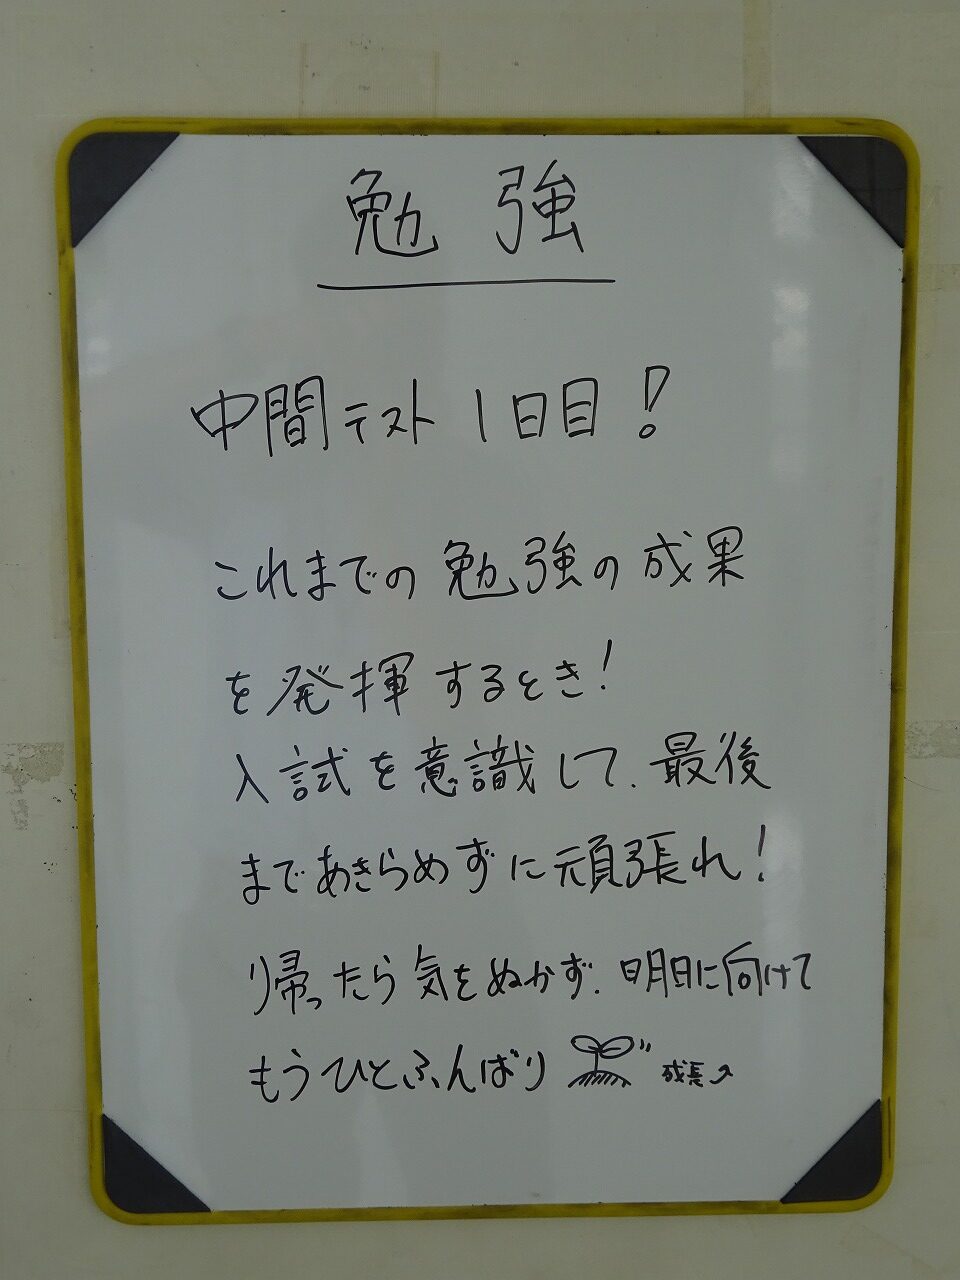 勉強
中間テスト1日目！
これまでの勉強の成果
を発揮するとき！
入試を意識して、最後
まであきらめずに頑張れ！
帰ったら気をぬかず、明日に向けて
もうひとふんばり 成長↗